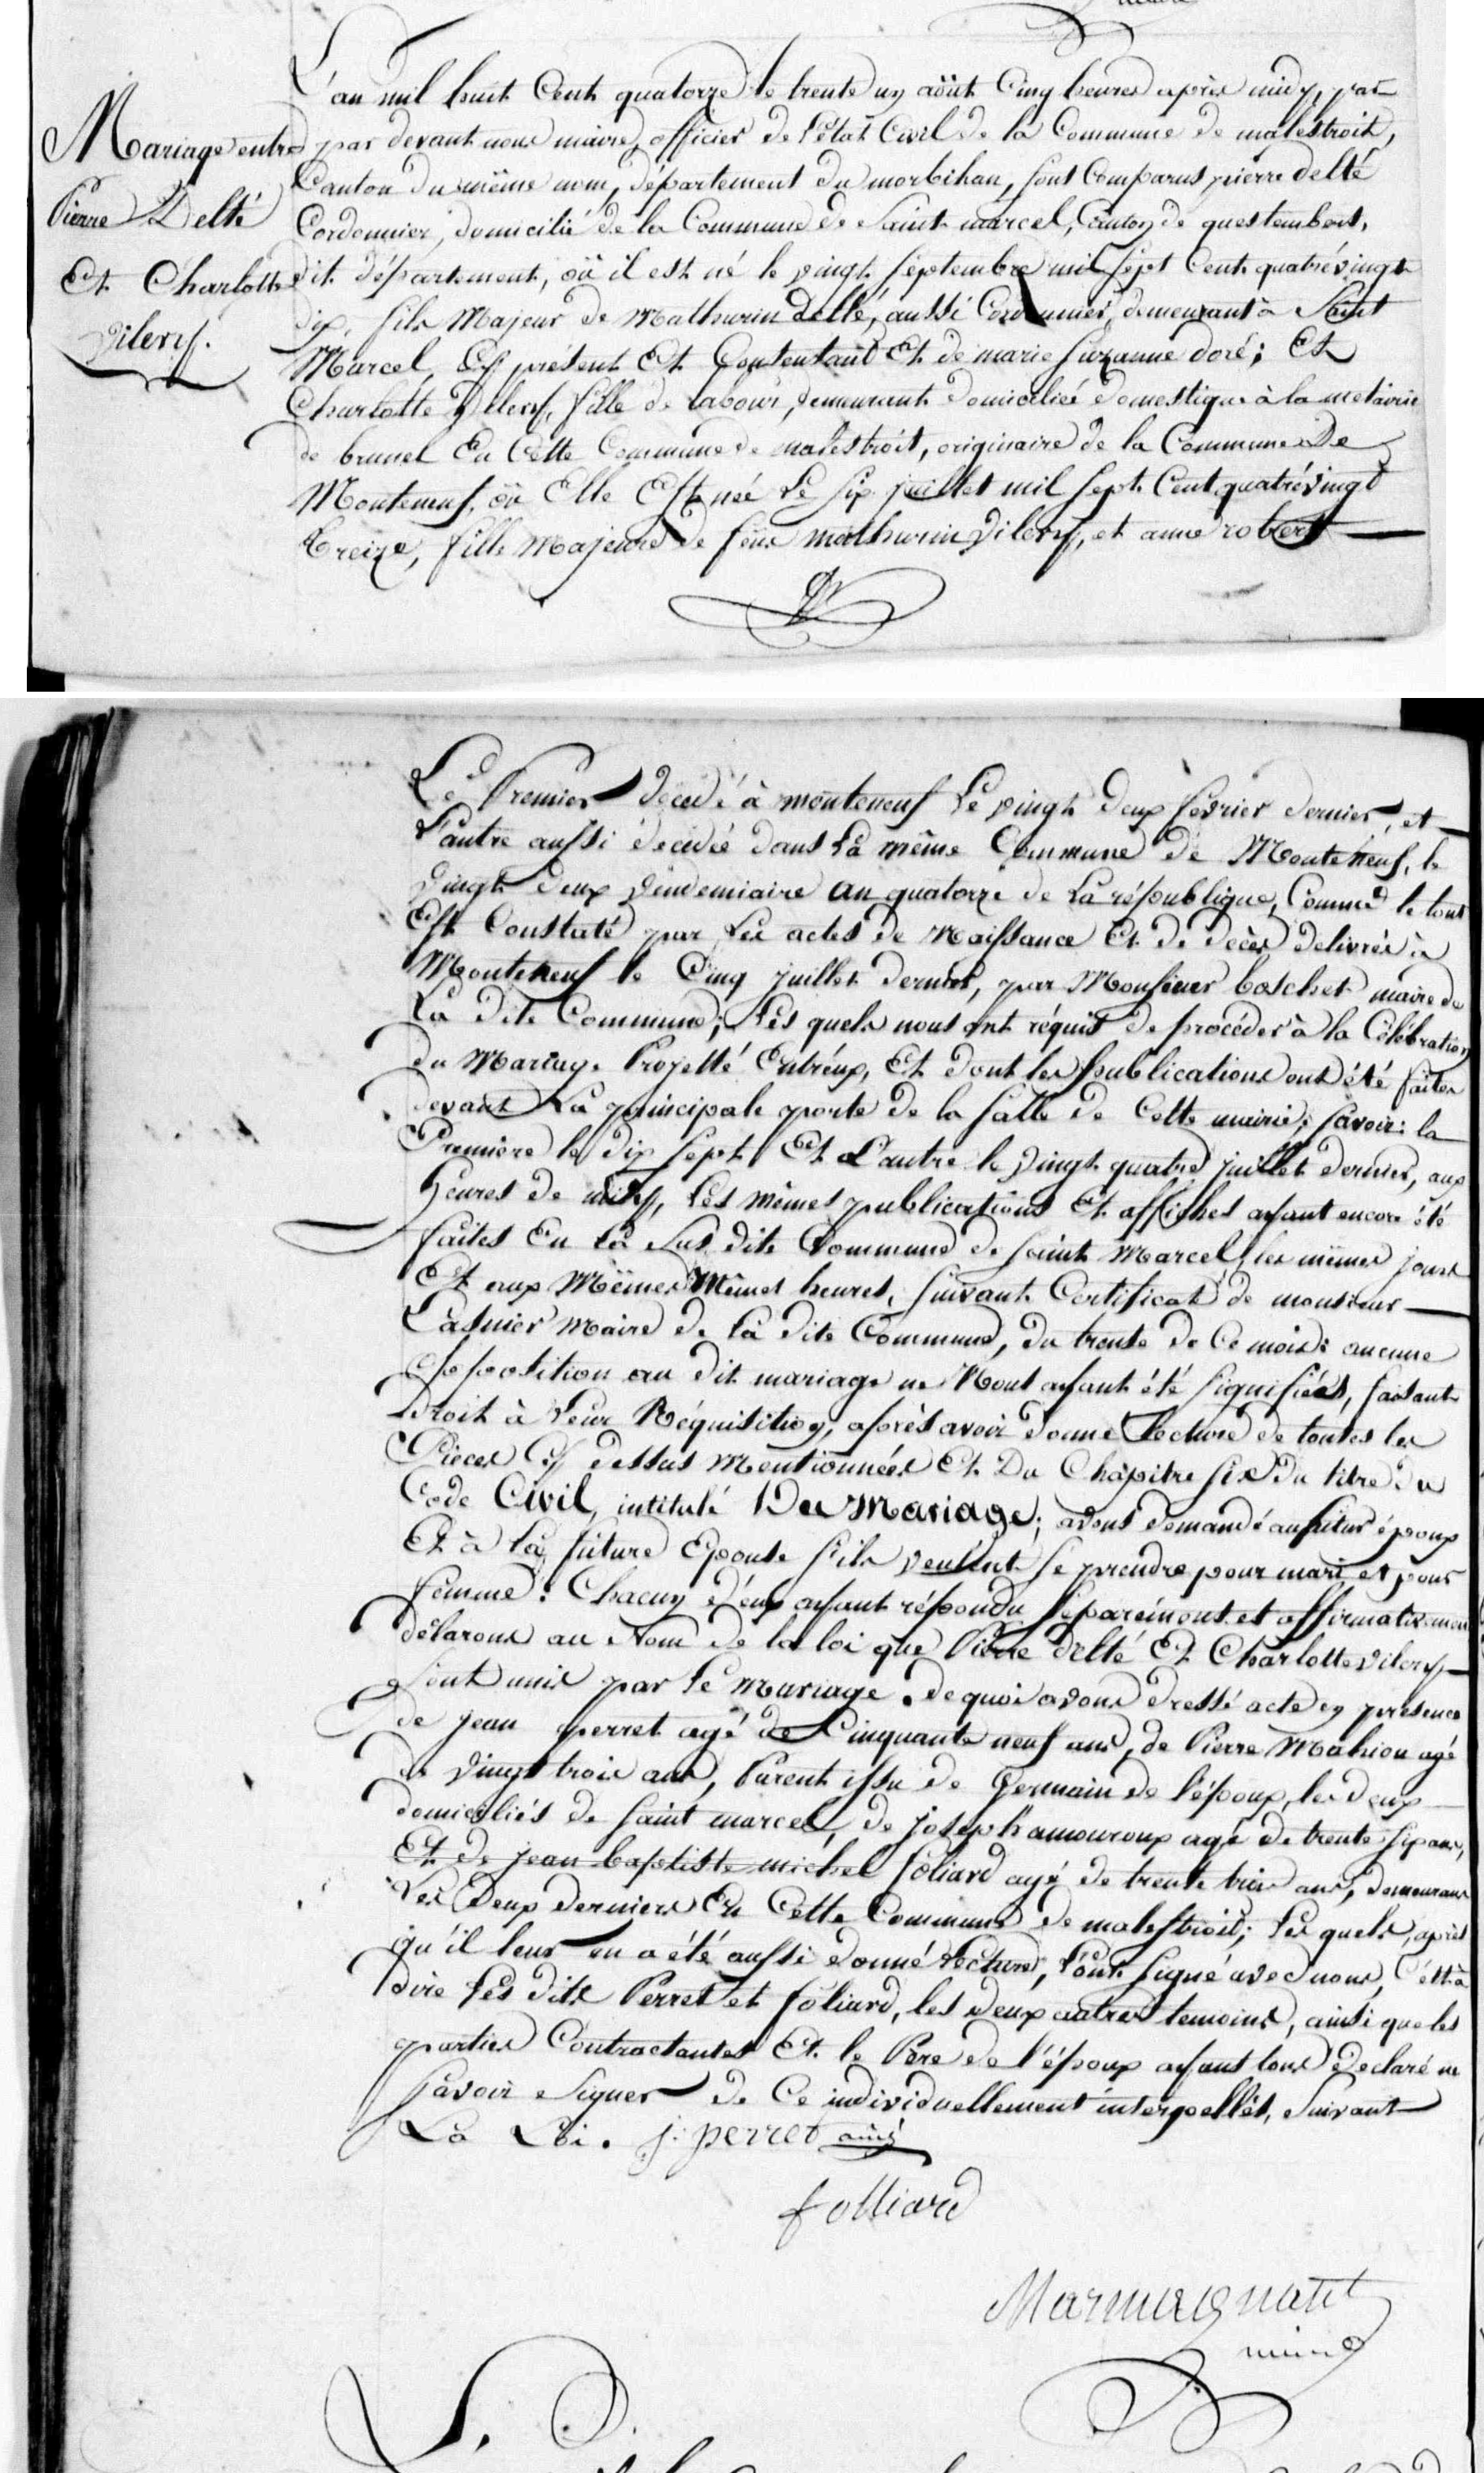 Mariage entre
Pierre Delté
Et Charlotte
Vilery.
L'an mil huit Cent quatorze le trente un août Cinq heures après midy, par
par devant nous maire, officier de l'état Civil de la Commune de malestroit,
Canton du même nom, département du morbihan, sont Comparus pierre delté
Cordonnier, domicilié de la Commune de Saint marcel, Canton de questembert,
dit département, où il est né le vingt septembre mil sept Cent quatrévingt
dix, fils Majeur de Mathurin delté, aussi Cordonnier, demeurant à Saint
Marcel, Cy présent Et Contentant Et de marie suzanne doré; Et
Charlotte Vilery, fille de labour, demeurant domiciliée domestique à la metairie
de brunel En Cette Commune de malestroit, originaire de la Commune De
Monteneuf, où Elle Est née Le six juillet mil sept Cent quatrévingt
treize, fille Majeure de feus mathurin Vilery, et anne robert
Le Premier décédé à monteneuf Le vingt deux février dernier, et
L'autre aussi décédée dans La même Commune de Monteneuf, le
vingt deux vendemiaire an quatorze de La république, Comme le tout
Est Constaté par Les actes de Naissance Et de décès delivrés à
Monteneuf le Cinq juillet dernier, par Monsieur boschet maire de
La dite Commune; Les quels nous ont réquis de procéder à la Célébration
du Mariage Projetté Entréux, Et dont les publications ont été faites
devant La principale porte de la salle de Cette mairie; savoir: la
Première le dix sept Et L'autre le vingt quatre juillet dernier, aux
heures de midy, Les mêmes publications Et affiches ayant encore été
faites En La sus dite Commune de saint Marcel, les mêmes jours
Et aux Mêmes Mêmes heures, suivant Certificat de monsieur
Lasnier Maire de La dite Commune, du trente de Ce mois: aucune
opposition au dit mariage ne Nous ayant été signifiées, faisant
droit à Leur Réquisition, après avoir donné Lecture de toutes les
Pièces Cy dessus Mentionnées Et Du Chapitre six Du titre du
Code Civil, intitulé Du Mariage; avons demandé au futur époux
Et à La future Epouse s'ils veulent se prendre pour mari et pour
femme: Chacun d'eux ayant répondu séparément et affirmativement
délarons au Nom de la loi que Pierre delté Et Charlotte vilery
sont unis par Le Mariage. de quoi avons dressé acte en présence
de jean perret agé de Cinquante neuf ans, de Pierre Mahiou agé
de vingt trois ans, Parent issu de Germain de l'époux, les deux
domiciliés de saint marcel, de joseph amouroux agé de trente six ans,
Et de jean baptiste michel foliard agé de trente trois ans, demeurans
Les Deux derniers En Cette Commune de malestroit; Les quels, après
qu'il leur en a été aussi donné Lecture, L'ont signé avec nous, C'est à
dire Les dits Perret et foliard, les deux autres temoins, ainsi que les
parties Contractantes Et le Père de l'époux ayant tous déclaré ne
savoir signer de Ce individuellement interpellés, suivant
La Loi. j: perret ainé
folliard
Marmagnant
maire